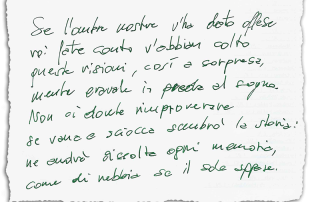 Se l'ombre nostre v'ha dato offesa
voi fate conto v'abbian colto
queste visioni, così a sorpresa,
mentre eravate in preda al sogno.
Non ci dovete rimproverare
se vana e sciocca sembrò la storia:
ne andrà disciolta ogni memoria,
come di nebbia se il sole appare.